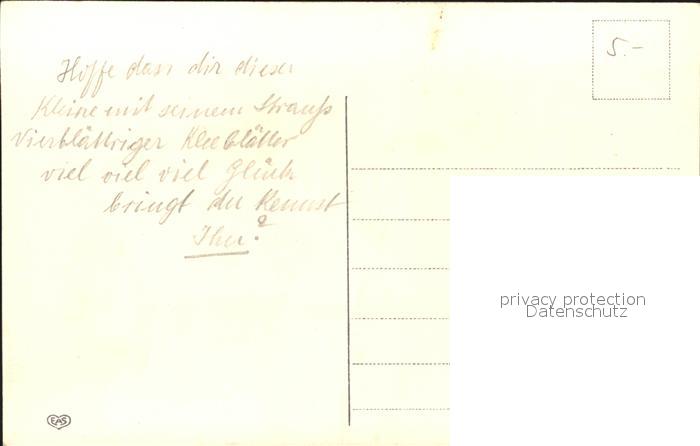 Hoffe dass dir dieser
Kleine mit seinem Strauss
vierblättriger Kleeblätter
viel viel viel Glück
bringt du Kennst
Ihn?
5.-
privacy protection
Datenschutz
EAS